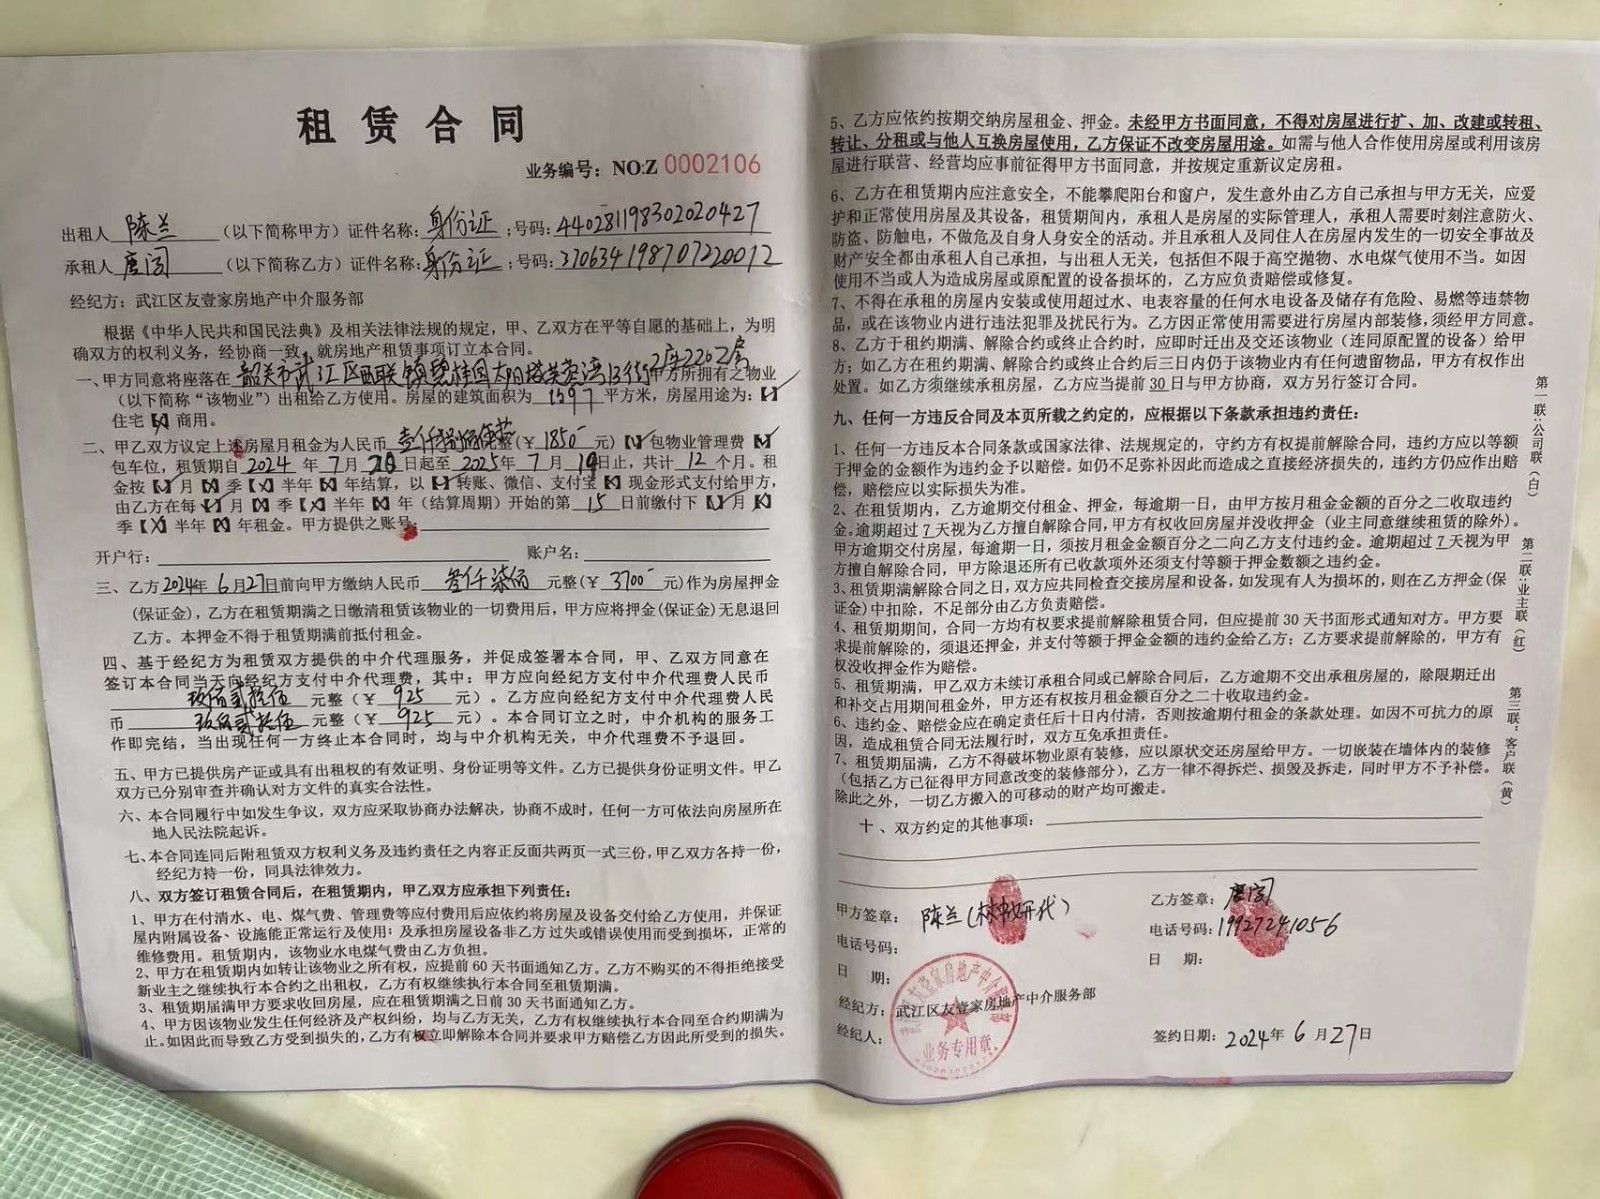 租赁合同
业务编号：NO:Z 0002106
出租人 陈兰 （以下简称甲方）证件名称：身份证；号码：440281198302020427
承租人 唐阁 （以下简称乙方）证件名称：身份证；号码：370634198707220012
经纪方：武江区友壹家房地产中介服务部
根据《中华人民共和国民法典》及相关法律法规的规定，甲、乙双方在平等自愿的基础上，为明
确双方的权利义务，经协商一致，就房地产租赁事项订立本合同。
一、甲方同意将座落在 韶关市武江区西联镇碧桂园太阳城芙蓉湾13街2座2202房 甲方所拥有之物业
（以下简称“该物业”）出租给乙方使用。房屋的建筑面积为 1597 平方米，房屋用途为：【✓】
住宅【X】商用。
二、甲乙双方议定上述房屋月租金为人民币 壹仟捌佰伍拾 整（￥ 1850 元）【✓】包物业管理费【✓】
包车位，租赁期自 2024 年 7 月 20 日起至 2025 年 7 月 19 日止，共计 12 个月。租
金按【✓】月【X】季【X】半年【X】年结算，以【✓】转账、微信、支付宝【X】现金形式支付给甲方，
由乙方在每【✓】月【X】季【X】半年【X】年（结算周期）开始的第 15 日前缴付下【✓】月【X】
季【X】半年【X】年租金。甲方提供之账号：
开户行： 账户名：
三、乙方 2024年 6月27日前向甲方缴纳人民币 叁仟柒佰 元整（￥ 3700 元）作为房屋押金
（保证金），乙方在租赁期满之日缴清租赁该物业的一切费用后，甲方应将押金（保证金）无息退回
乙方。本押金不得于租赁期满前抵付租金。
四、基于经纪方为租赁双方提供的中介代理服务，并促成签署本合同，甲、乙双方同意在
签订本合同当天向经纪方支付中介代理费，其中：甲方应向经纪方支付中介代理费人民币
玖佰贰拾伍 元整（￥ 925 元）。乙方应向经纪方支付中介代理费人民
币 玖佰贰拾伍 元整（￥ 925 元）。本合同订立之时，中介机构的服务工
作即完结，当出现任何一方终止本合同时，均与中介机构无关，中介代理费不予退回。
五、甲方已提供房产证或具有出租权的有效证明、身份证明等文件。乙方已提供身份证明文件。甲乙
双方已分别审查并确认对方文件的真实合法性。
六、本合同履行中如发生争议，双方应采取协商办法解决，协商不成时，任何一方可依法向房屋所在
地人民法院起诉。
七、本合同连同后附租赁双方权利义务及违约责任之内容正反面共两页一式三份，甲乙双方各持一份，
经纪方持一份，同具法律效力。
八、双方签订租赁合同后，在租赁期内，甲乙双方应承担下列责任：
1、甲方在付清水、电、煤气费、管理费等应付费用后应依约将房屋及设备交付给乙方使用，并保证
屋内附属设备、设施能正常运行及使用；及承担房屋设备非乙方过失或错误使用而受到损坏，正常的
维修费用。租赁期内，该物业水电煤气费由乙方负担。
2、甲方在租赁期内如转让该物业之所有权，应提前60天书面通知乙方。乙方不购买的不得拒绝接受
新业主之继续执行本合约之出租权，乙方有权继续执行本合同至租赁期满。
3、租赁期届满甲方要求收回房屋，应在租赁期满之日前30天书面通知乙方。
4、甲方因该物业发生任何经济及产权纠纷，均与乙方无关，乙方有权继续执行本合同至合约期满为
止。如因此而导致乙方受到损失的，乙方有权立即解除本合同并要求甲方赔偿乙方因此所受到的损失。
5、乙方应依约按期交纳房屋租金、押金。未经甲方书面同意，不得对房屋进行扩、加、改建或转租、
转让、分租或与他人互换房屋使用，乙方保证不改变房屋用途。如需与他人合作使用房屋或利用该房
屋进行联营、经营均应事前征得甲方书面同意，并按规定重新议定房租。
6、乙方在租赁期内应注意安全，不能攀爬阳台和窗户，发生意外由乙方自己承担与甲方无关，应爱
护和正常使用房屋及其设备，租赁期间内，承租人是房屋的实际管理人，承租人需要时刻注意防火、
防盗、防触电，不做危及自身人身安全的活动。并且承租人及同住人在房屋内发生的一切安全事故及
财产安全都由承租人自己承担，与出租人无关，包括但不限于高空抛物、水电煤气使用不当。如因
使用不当或人为造成房屋或原配置的设备损坏的，乙方应负责赔偿或修复。
7、不得在承租的房屋内安装或使用超过水、电表容量的任何水电设备及储存有危险、易燃等违禁物
品，或在该物业内进行违法犯罪及扰民行为。乙方因正常使用需要进行房屋内部装修，须经甲方同意。
8、乙方于租约期满、解除合约或终止合约时，应即时迁出及交还该物业（连同原配置的设备）给甲
方；如乙方在租约期满、解除合约或终止合约后三日内仍于该物业内有任何遗留物品，甲方有权作出
处置。如乙方须继续承租房屋，乙方应当提前30日与甲方协商，双方另行签订合同。
九、任何一方违反合同及本页所载之约定的，应根据以下条款承担违约责任：
1、任何一方违反本合同条款或国家法律、法规规定的，守约方有权提前解除合同，违约方应以等额
于押金的金额作为违约金予以赔偿。如仍不足弥补因此而造成之直接经济损失的，违约方仍应作出赔
偿，赔偿应以实际损失为准。
2、在租赁期内，乙方逾期交付租金、押金，每逾期一日，由甲方按月租金金额的百分之二收取违约
金。逾期超过7天视为乙方擅自解除合同，甲方有权收回房屋并没收押金（业主同意继续租赁的除外）。
甲方逾期交付房屋，每逾期一日，须按月租金金额百分之二向乙方支付违约金。逾期超过7天视为甲
方擅自解除合同，甲方除退还所有已收款项外还须支付等额于押金数额之违约金。
3、租赁期满解除合同之日，双方应共同检查交接房屋和设备，如发现有人为损坏的，则在乙方押金（保
证金）中扣除，不足部分由乙方负责赔偿。
4、租赁期期间，合同一方均有权要求提前解除租赁合同，但应提前30天书面形式通知对方。甲方要
求提前解除的，须退还押金，并支付等额于押金金额的违约金给乙方；乙方要求提前解除的，甲方有
权没收押金作为赔偿。
5、租赁期满，甲乙双方未续订承租合同或已解除合同后，乙方逾期不交出承租房屋的，除限期迁出
和补交占用期间租金外，甲方还有权按月租金额百分之二十收取违约金。
6、违约金、赔偿金应在确定责任后十日内付清，否则按逾期付租金的条款处理。如因不可抗力的原
因，造成租赁合同无法履行时，双方互免承担责任。
7、租赁期届满，乙方不得破坏物业原有装修，应以原状交还房屋给甲方。一切嵌装在墙体内的装修
（包括乙方已征得甲方同意改变的装修部分），乙方一律不得拆烂、损毁及拆走，同时甲方不予补偿。
除此之外，一切乙方搬入的可移动的财产均可搬走。
十、双方约定的其他事项：
甲方签章： 陈兰(
乙方签章： 唐阁
电话号码：
电话号码：19927241056
日 期：
日 期：
经纪方：武江区友壹家房地产中介服务部
经纪人：
签约日期：2024年 6月27日
业务专用章
第一联：公司联（白）
第二联：业主联（红）
第三联：客户联（黄）